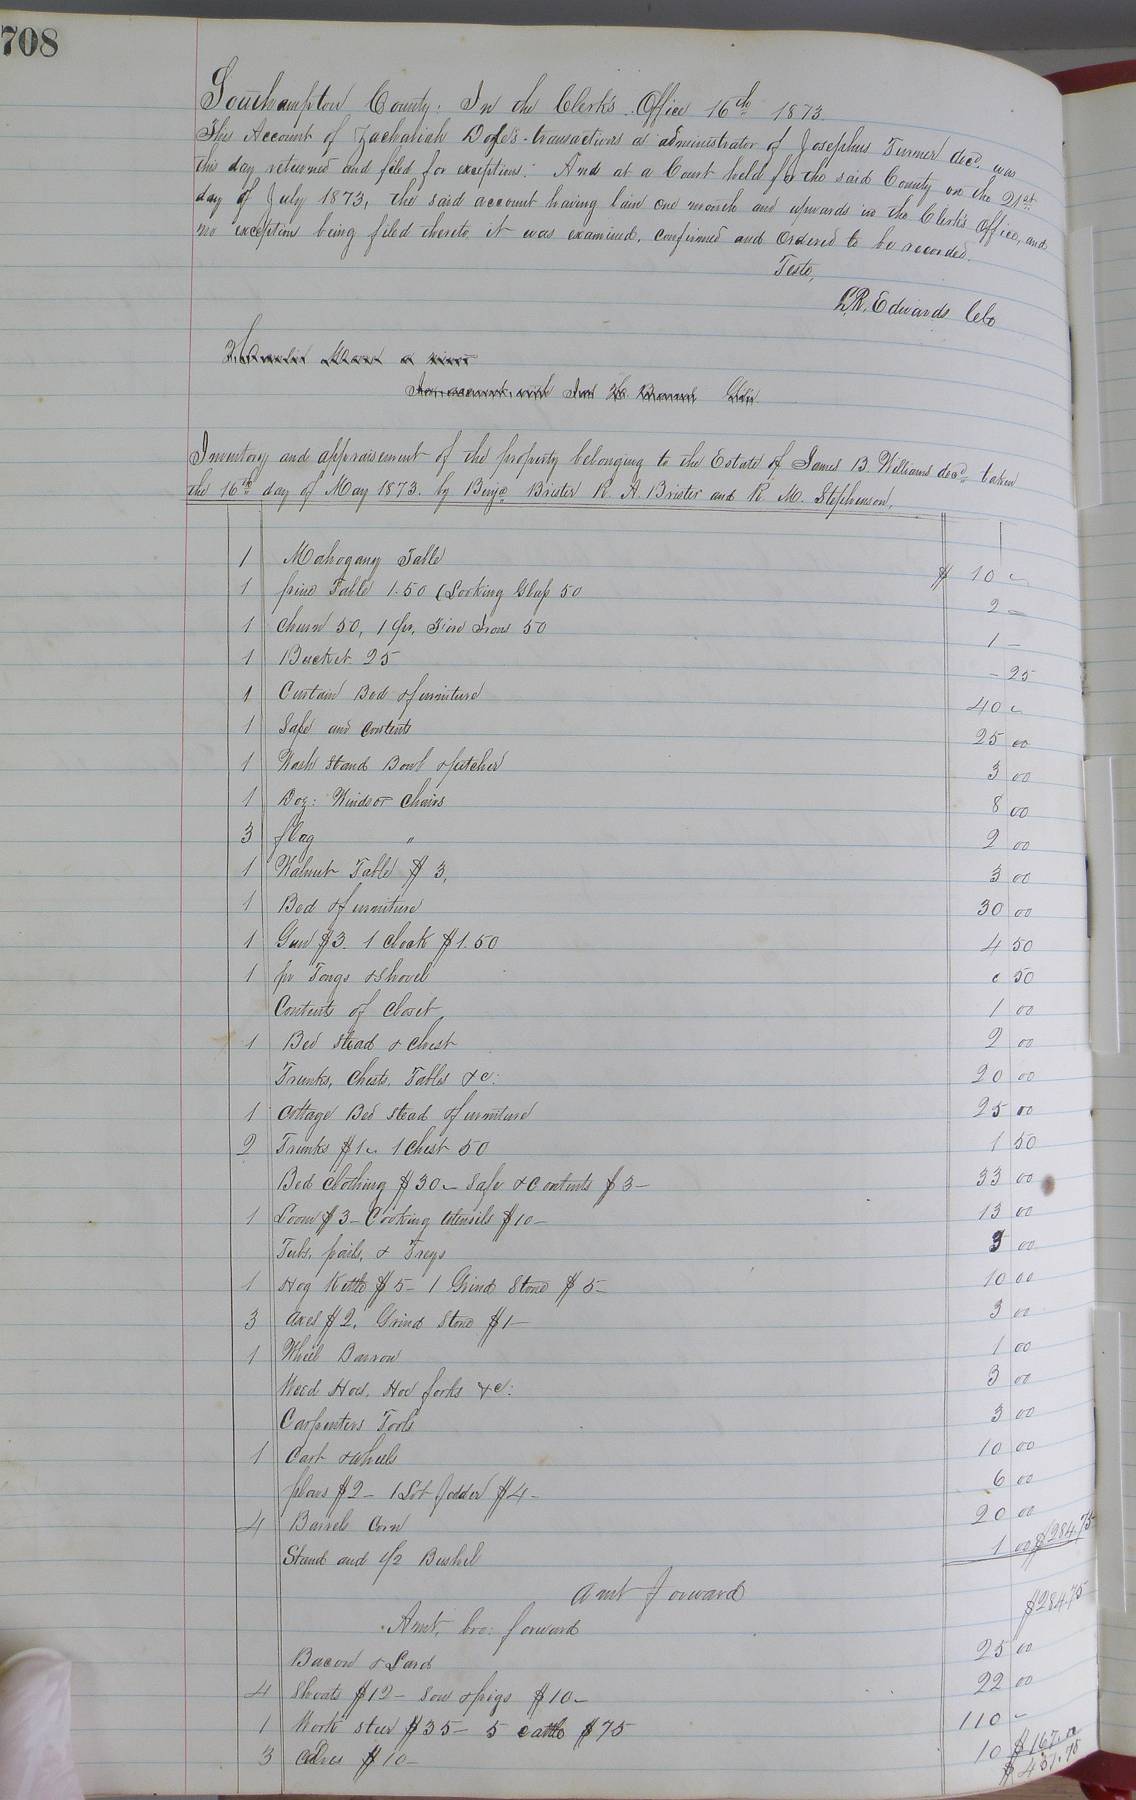 708
Southampton County. In the Clerk's Office 16th 1873.
This Account of Zachariah Doyle's transactions as administrator of Josephus Turner decd. was
this day returned and filed for exceptions: And at a Court held for the said County on the 21st
day of July 1873, the said account having lain one month and upwards in the Clerk's Office, and
no exception being filed thereto, it was examined, confirmed and Ordered to be recorded.
Teste,
L.R. Edwards Clk
Inventory and appraisement of the property belonging to the Estate of James B. Williams decd. taken
the 16th day of May 1873. by Benja Brister R. A. Brister and R. M. Stephenson.
1 Mahogany Table $ 10 "
1 pine Table 1.50 (Looking Glass 50 2 –
1 Churn 50, 1 pr. Fire Irons 50 1 –
1 Bucket 25 – 25
1 Curtain Bed & furniture 40 "
1 Safe and contents 25 00
1 Wash stand Bowl & pitcher 3 00
1 Doz: Windsor Chairs 8 00
3 flag " 2 00
1 Walnut Table $ 3, 3 00
1 Bed & furniture 30 00
1 Gun $3. 1 clock $1.50 4 50
1 pr Tongs & shovel " 50
Contents of closet 1 00
1 Bed stead & chest 2 00
Trunks, Chests, Tables &c: 20 00
1 Cottage Bed stead & furniture 25 00
2 Trunks $1 " 1 Chest 50 1 50
Bed clothing $30 – Safe & Contents $3 – 33 00
1 Loom $3 – Cooking utensils $10 – 13 00
Tubs, pails, & Trays 3 00
1 Hog Kettle $5 – 1 Grind Stone $5 – 10 00
3 axes $2. Grind Stone $1 – 3 00
1 Wheel Barrow 1 00
Weed Hoes, Hoe forks &c: 3 00
Carpenters Tools 3 00
1 Cart & wheels 10 00
plows $2 – 1 Lot fodder $4 – 6 00
4 Barrels Corn 20 00
Stand and 1/2 Bushel 1 00 $284.75
Amt forward
Amt. bro: forward $284.75
Bacon & Lard 25 00
4 Shoats $12 – Sow & pigs $10 – 22 00
1 Work steer $35 – 5 cattle $75 110 "
3 calves $10 – 10 $167.00
$451.75